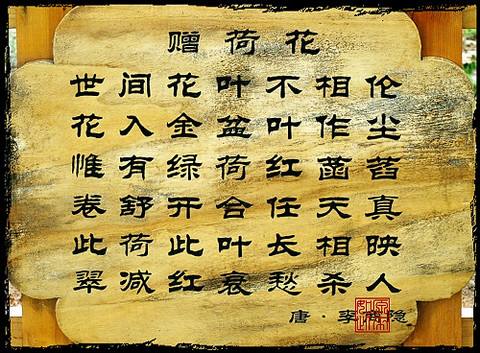 赠荷花
世间花叶不相伦
花入金盆叶作尘
惟有绿荷红菡萏
卷舒开合任天真
此荷此叶长相映
翠减红衰愁杀人
唐·李商隐